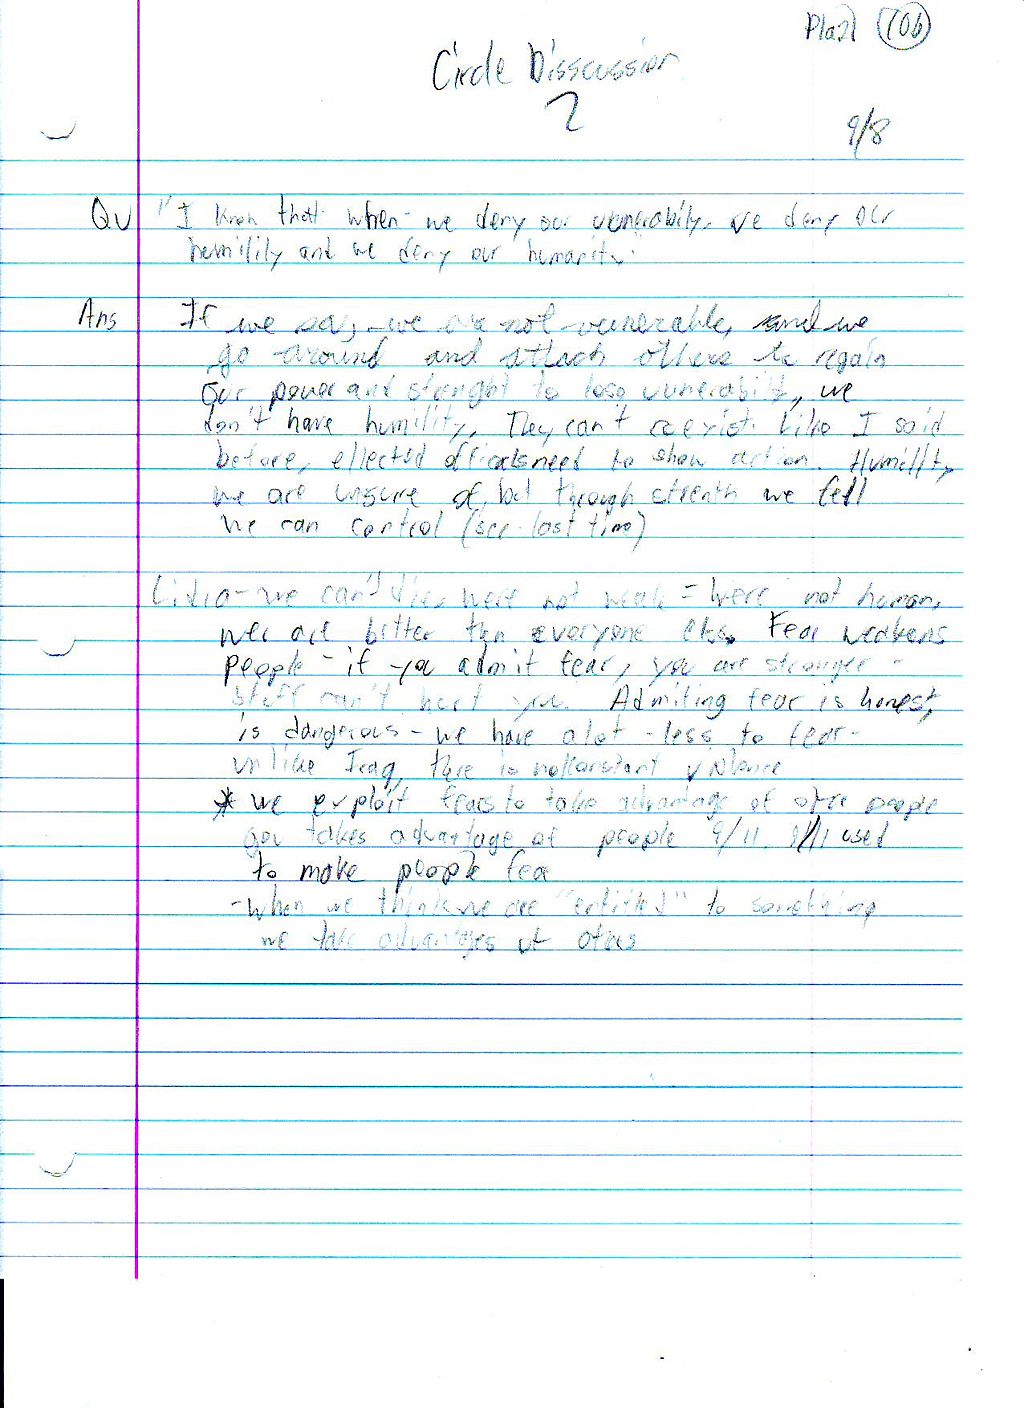 Pla21 (10b)
Circle Disscussion
2
9/8
Qu "I know that when we deny our vunerabily, we deny our
humilily and we deny our humanity."
Ans If we say we are not vunerable, and we
go around and attack others to regain
our power and strenght to lose vunerability, we
don't have humility. They can't coexist. Like I said
before, ellected officals need to show action. Humillity
we are unsure of, but through strenth we fell
we can control (see last time)
we can't die, were not weak = were not human,
wer are better than everyone else. Fear weakens
people - if you admit fear, you are stronger -
stuff can't hurt you. Admiting fear is honest,
is dangerous - we have a lot - less to fear -
unlike Iraq, there is not constant violence
* we exploit fears to take advantage of other people
gov takes advantage of people 9/11. 9/11 used
to make people fear
- When we think we are "entitled" to something
we take advantages of others